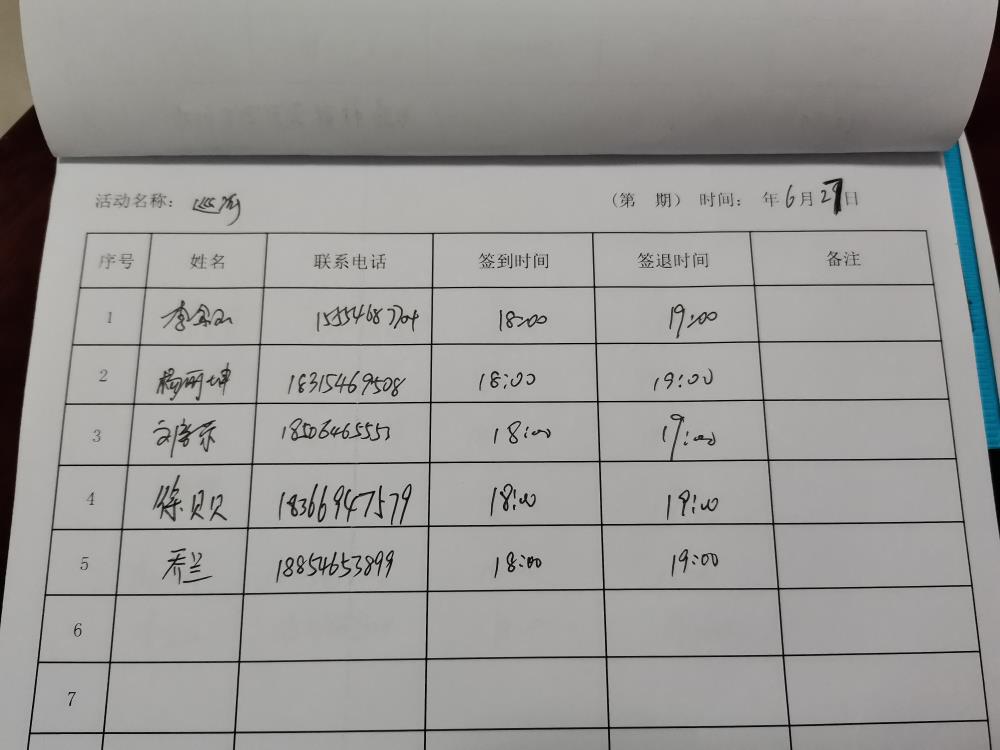 活动名称：巡河 （第 期） 时间： 年6月27日
序号 姓名 联系电话 签到时间 签退时间 备注
1 李 18:00 19:00
2 杨丽坤 18315469508 18:00 19:00
3 18506465553 18:00 19:00
4 徐贝贝 18366947579 18:00 19:00
5 乔兰 18854653899 18:00 19:00
6
7